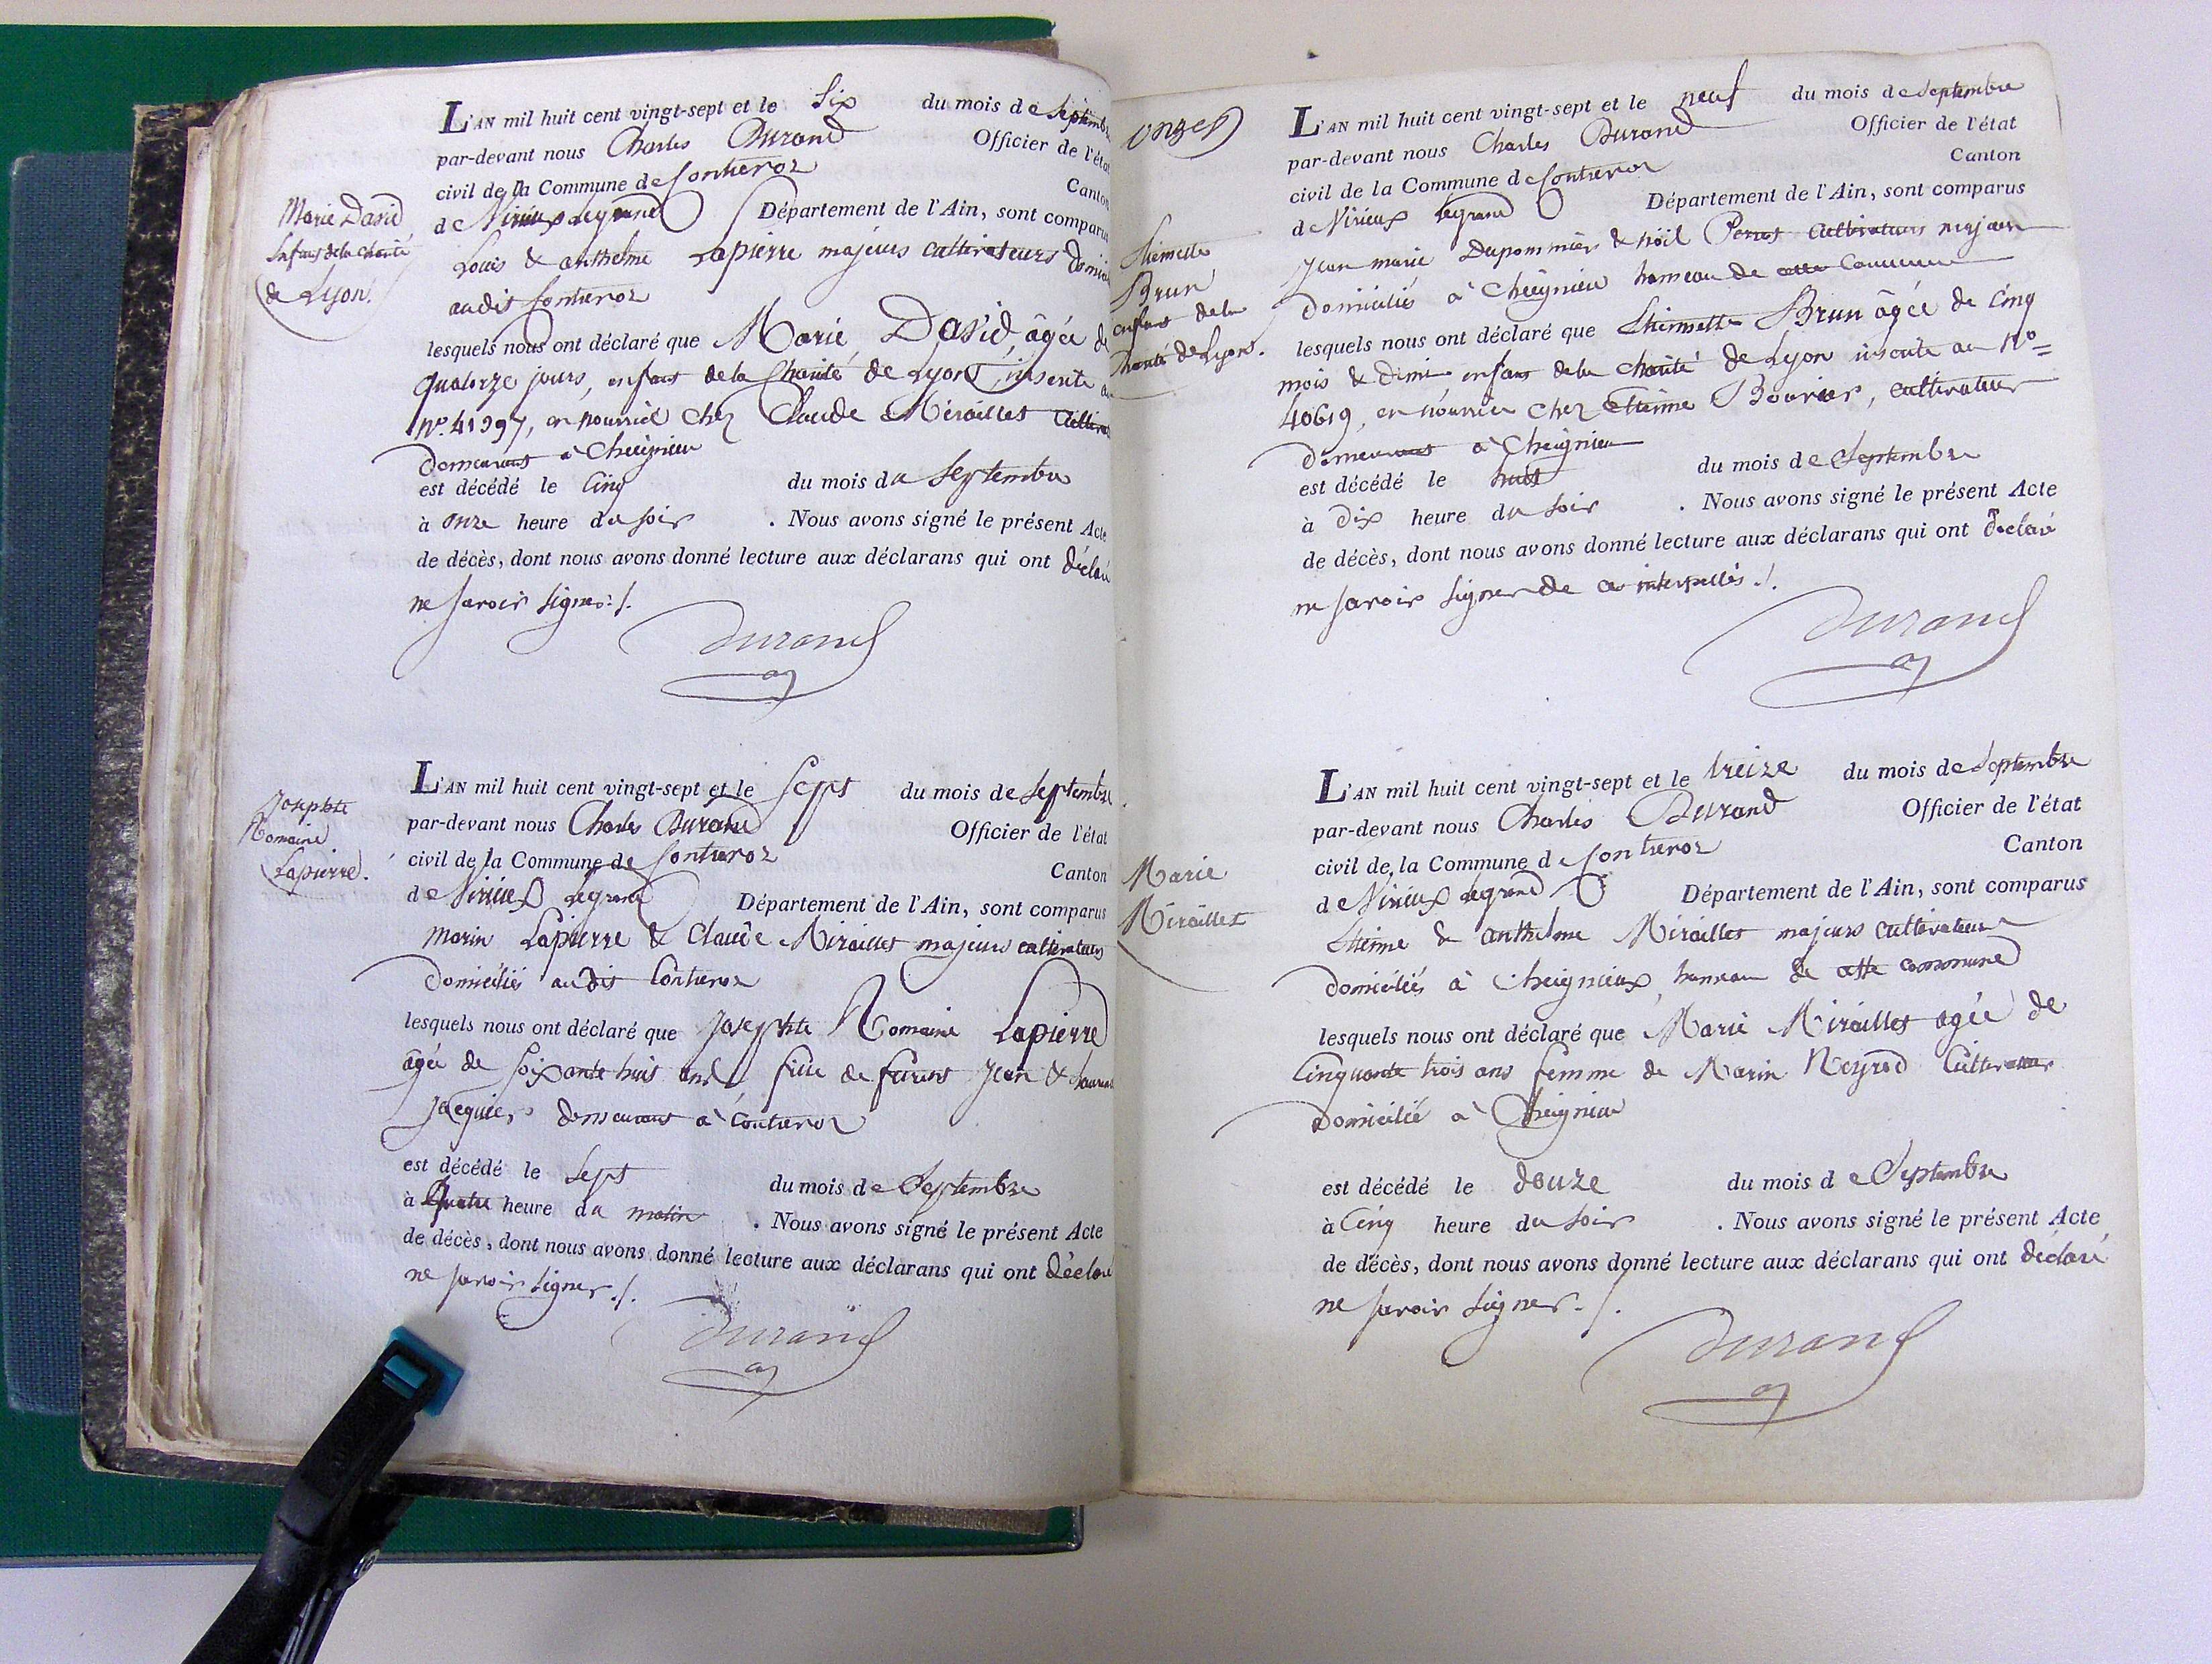 L'AN mil huit cent vingt-sept et le Six du mois de Septembre
par-devant nous Charles Durand Officier de l'état
civil de la Commune de Contrevoz Canton
de Virieux legrand Département de l'Ain, sont comparus
Louis & anthelme Lapierre majeurs cultivateurs
audit Contrevoz
lesquels nous ont déclaré que Marie David, âgée de
quatorze jours, enfant de la Charité de Lyon, inscrite au
N°. 41397, en nourrice chez Claude Miraillet
demeurant à Cheignieu
est décédé le Cinq du mois de Septembre
à onze heure du soir . Nous avons signé le présent Acte
de décès, dont nous avons donné lecture aux déclarans qui ont déclaré
ne savoir signer ./.
Durand
Marie David
Enfant de la Charité
de Lyon.
L'AN mil huit cent vingt-sept et le Sept du mois de Septembre
par-devant nous Charles Durand Officier de l'état
civil de la Commune de Contrevoz Canton
de Virieux legrand Département de l'Ain, sont comparus
Marin Lapierre & Claude Miraillet majeurs cultivateurs
domiciliés audit Contrevoz
lesquels nous ont déclaré que Josephte Romaine Lapierre
agée de soixante huit ans fille de furent Jean &
Jacquier, demeurant à Contrevoz
est décédé le Sept du mois de Septembre
à Quatre heure du matin . Nous avons signé le présent Acte
de décès, dont nous avons donné lecture aux déclarans qui ont déclaré
ne savoir signer ./.
Durand
Josephte
Romaine
Lapierre.
onze
L'AN mil huit cent vingt-sept et le neuf du mois de Septembre
par-devant nous Charles Durand Officier de l'état
civil de la Commune de Contrevoz Canton
de Virieux legrand Département de l'Ain, sont comparus
Jean marie Dupommier & Noël Perret cultivateurs majeurs
domiciliés à Cheignieu hameau de cette Commune
lesquels nous ont déclaré que Etiennette Brun âgée de cinq
mois & demi enfant de la charité de Lyon inscrite au N°=
40619, en nourrice chez Etienne Bouvier, cultivateur
demeurant à Cheignieu
est décédé le huit du mois de Septembre
à Dix heure du soir . Nous avons signé le présent Acte
de décès, dont nous avons donné lecture aux déclarans qui ont déclaré
ne savoir signer de ce interpellés ./.
Durand
Etiennette
Brun
enfant de la
charité de Lyon.
L'AN mil huit cent vingt-sept et le treize du mois de Septembre
par-devant nous Charles Durand Officier de l'état
civil de la Commune de Contrevoz Canton
de Virieux legrand Département de l'Ain, sont comparus
Etienne & anthelme Miraillet majeurs cultivateurs
domiciliés à Cheignieux, hameau de cette commune
lesquels nous ont déclaré que Marie Miraillet agée de
Cinquante trois ans femme de Marin Neyrod Cultivateur
domicilié à Cheignieu
est décédé le douze du mois de Septembre
à Cinq heure du soir . Nous avons signé le présent Acte
de décès, dont nous avons donné lecture aux déclarans qui ont déclaré
ne savoir signer ./.
Durand
Marie
Miraillet